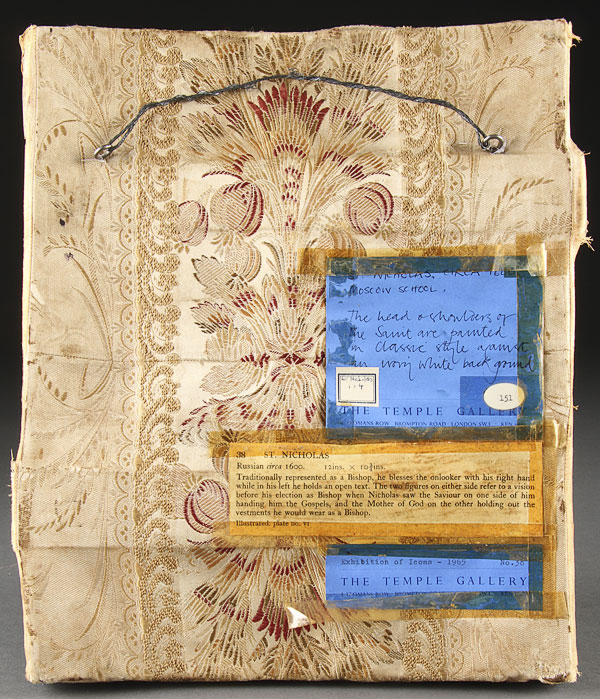 NICHOLAS. CIRCA
MOSCOW SCHOOL.
The head & shoulders of
the Saint are painted
in Classic style against
an ivory white back ground
151
THE TEMPLE GALLERY
YEOMANS ROW BROMPTON ROAD LONDON SW1. KEN
38 ST. NICHOLAS
Russian circa 1600. 12ins. × 10½ins.
Traditionally represented as a Bishop, he blesses the onlooker with his right hand
while in his left he holds an open text. The two figures on either side refer to a vision
before his election as Bishop when Nicholas saw the Saviour on one side of him
handing him the Gospels, and the Mother of God on the other holding out the
vestments he would wear as a Bishop.
Illustrated: plate no. VI
Exhibition of Icons - 1965 No.38
THE TEMPLE GALLERY
YEOMANS ROW BROMPTON LONDON SW1. KEN